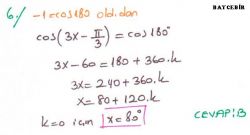 BAYCEBİR
6./ -1=cos180 olduğundan
cos(3x - π/3) = cos180°
3x-60 = 180+360.k
3x = 240+360.k
x = 80+120.k
k=0 için x=80°
CEVAP:B